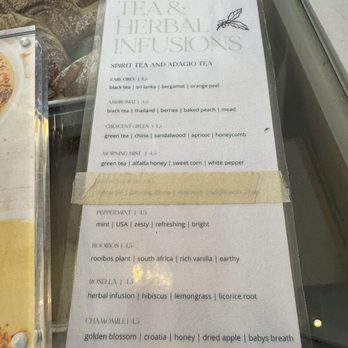 TEA &
HERBAL
INFUSIONS
SPIRIT TEA AND ADAGIO TEA
EARL GREY | 4.5
black tea | sri lanka | bergamot | orange peel
black tea | thailand | berries | baked peach | mead
CRESCENT GREEN | 4.5
green tea | china | sandalwood | apricot | honeycomb
MORNING MIST | 4.5
green tea | alfalfa honey | sweet corn | white pepper
PEPPERMINT | 4.5
mint | USA | zesty | refreshing | bright
ROOIBOS | 4.5
rooibos plant | south africa | rich vanilla | earthy
ROSELLA | 4.5
herbal infusion | hibiscus | lemongrass | licorice root
CHAMOMILE | 4.5
golden blossom | croatia | honey | dried apple | babys breath